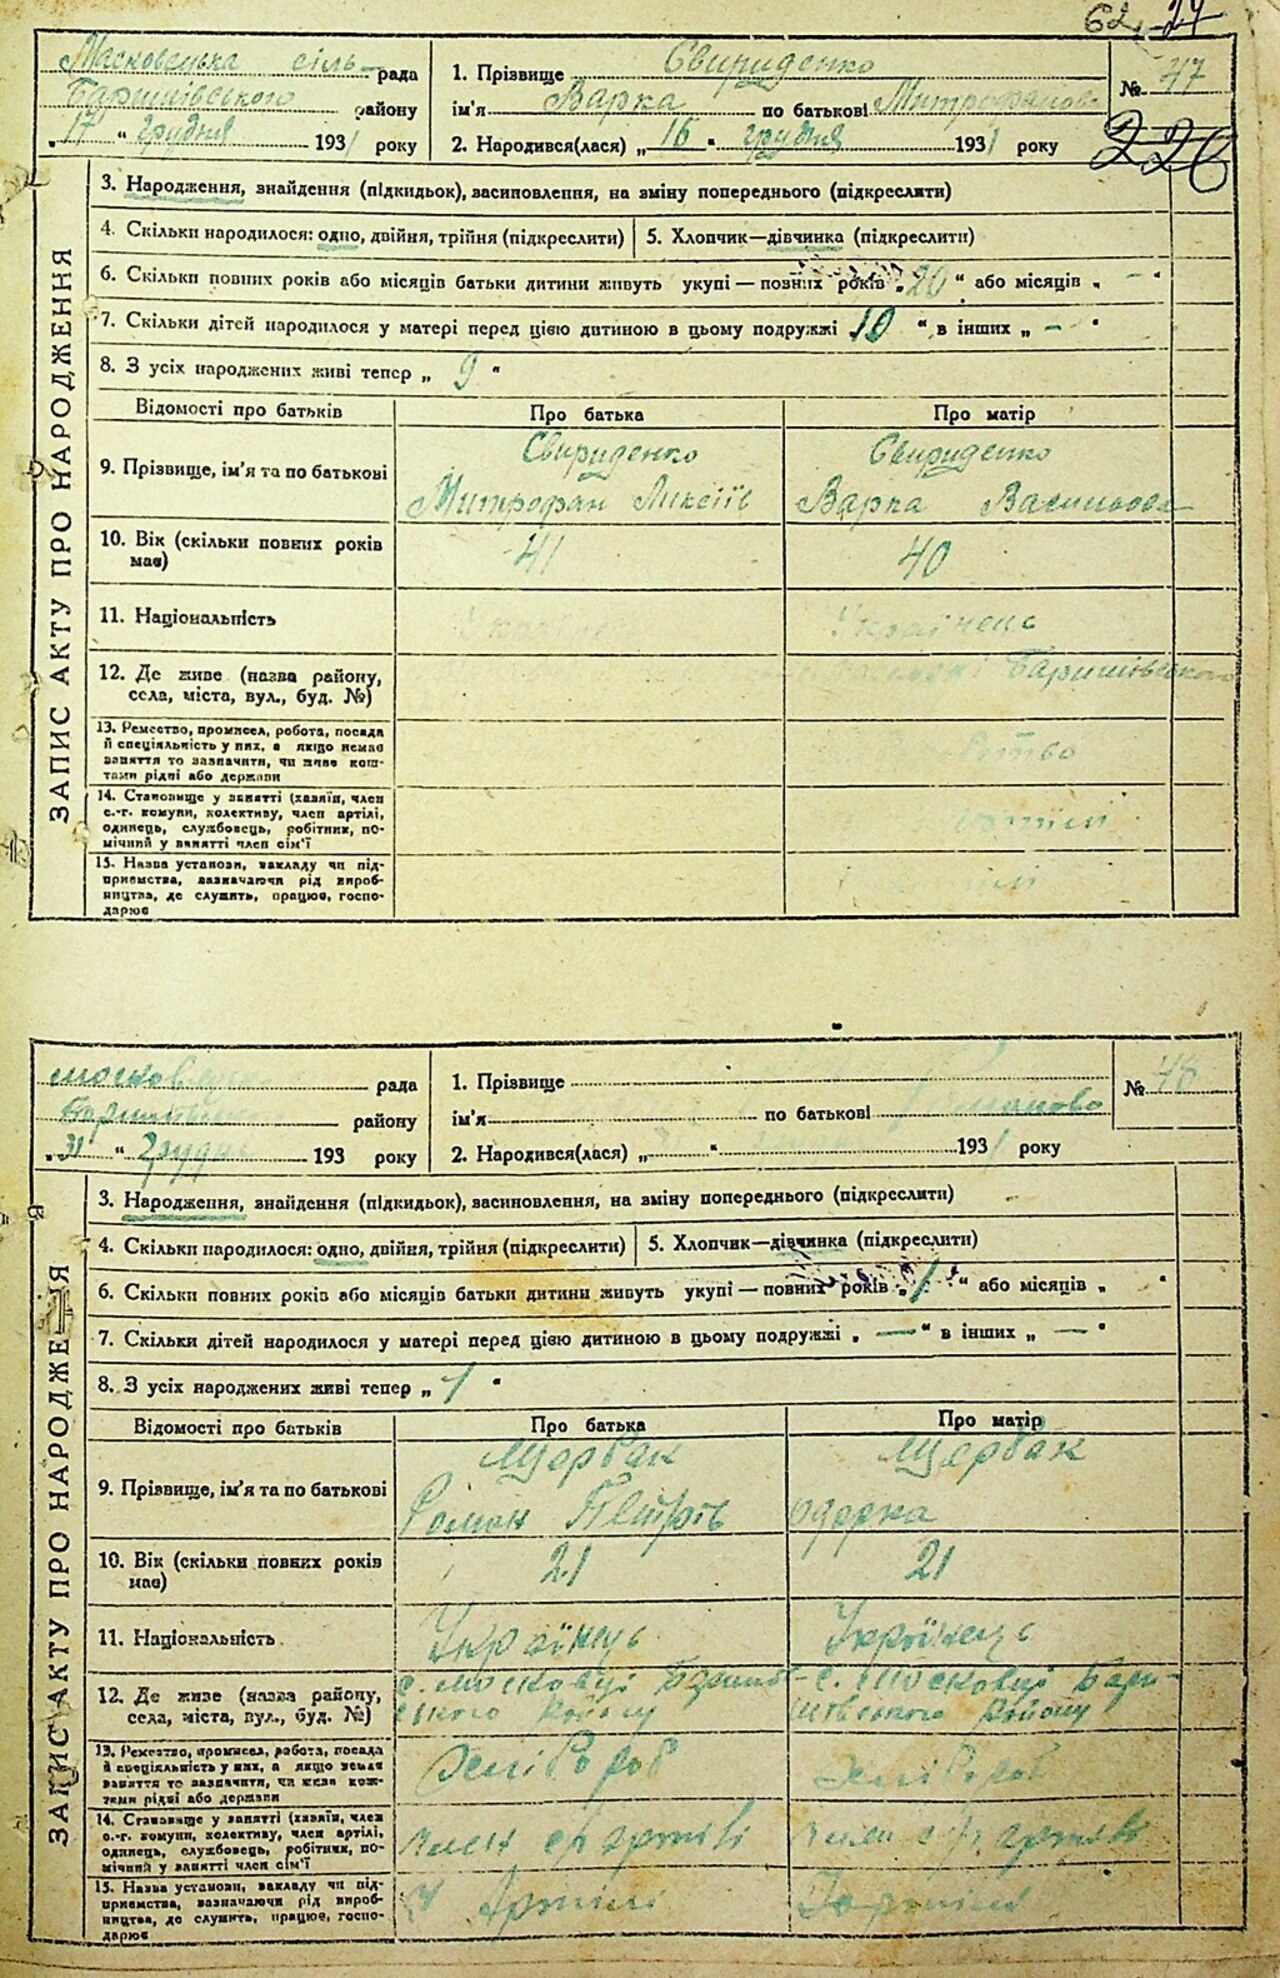 62. 24
Масковецька сіль- рада
Баришівського району
„ 17 “ грудня 1931 року
1. Прізвище Свириденко
ім'я Варка по батькові Митрофанов
2. Народився(лася) „ 16 “ грудня 1931 року
№ 47
226
ЗАПИС АКТУ ПРО НАРОДЖЕННЯ
3. Народження, знайдення (підкидьок), засиновлення, на зміну попереднього (підкреслити)
4. Скільки народилося: одно, двійня, трійня (підкреслити)
5. Хлопчик—дівчинка (підкреслити)
6. Скільки повних років або місяців батьки дитини живуть укупі — повних років „ 20 “ або місяців „ - “
7. Скільки дітей народилося у матері перед цією дитиною в цьому подружжі „ 10 “ в інших „ - “
8. З усіх народжених живі тепер „ 9 “
Відомості про батьків
Про батька
Про матір
9. Прізвище, ім'я та по батькові
Свириденко
Митрофан Ликсіїв
Свириденко
Варка Васильова
10. Вік (скільки повних років
має)
41
40
11. Національність
Українець
12. Де живе (назва району,
села, міста, вул., буд. №)
Баришівського
13. Ремество, промисел, робота, посада
й спеціяльність у них, а якщо немає
заняття то зазначити, чи живе кош-
тами рідні або держави
14. Становище у занятті (хазяїн, член
с.-г. комуни, колективу, член артілі,
одинець, службовець, робітник, по-
мічний у занятті член сім'ї
15. Назва установи, закладу чи під-
приємства, зазначаючи рід вироб-
ництва, де служить, працює, госпо-
дарює
рада
Баришівського району
„ 31 “ Грудня 193 року
1. Прізвище
ім'я по батькові Романово
2. Народився(лася) „ “ 1931 року
№ 48
ЗАПИС АКТУ ПРО НАРОДЖЕ Я
3. Народження, знайдення (підкидьок), засиновлення, на зміну попереднього (підкреслити)
4. Скільки народилося: одно, двійня, трійня (підкреслити)
5. Хлопчик—дівчинка (підкреслити)
6. Скільки повних років або місяців батьки дитини живуть укупі — повних років „ 1 “ або місяців „ “
7. Скільки дітей народилося у матері перед цією дитиною в цьому подружжі „ — “ в інших „ — “
8. З усіх народжених живі тепер „ 1 “
Відомості про батьків
Про батька
Про матір
9. Прізвище, ім'я та по батькові
Щербак
Роман Петрів
Щербак
одарка
10. Вік (скільки повних років
має)
21
21
11. Національність
Українець
Українець
12. Де живе (назва району,
села, міста, вул., буд. №)
с. Московці Баришів-
ського Району
с. Московці Бари-
шівського Району
13. Ремество, промисел, робота, посада
й спеціяльність у них, а якщо немає
заняття то зазначити, чи живе кош-
тами рідні або держави
Хліборob
Хлібороб
14. Становище у занятті (хазяїн, член
с.-г. комуни, колективу, член артілі,
одинець, службовець, робітник, по-
мічний у занятті член сім'ї
член артілі
член артілі
15. Назва установи, закладу чи під-
приємства, зазначаючи рід вироб-
ництва, де служить, працює, госпо-
дарює
У Артілі